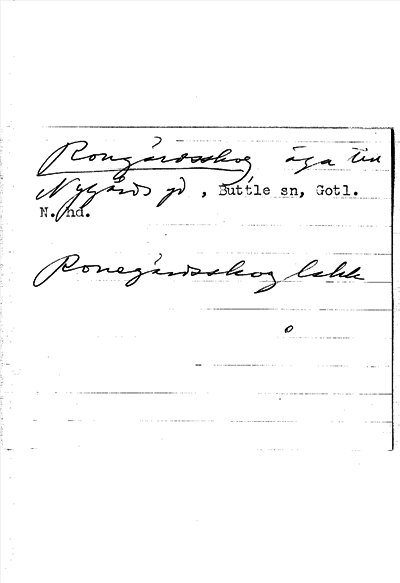 Rongårdsskog äga till
Nygårds gd, Buttle sn, Gotl.
N. hd.
Ronegårdsskog Lskk